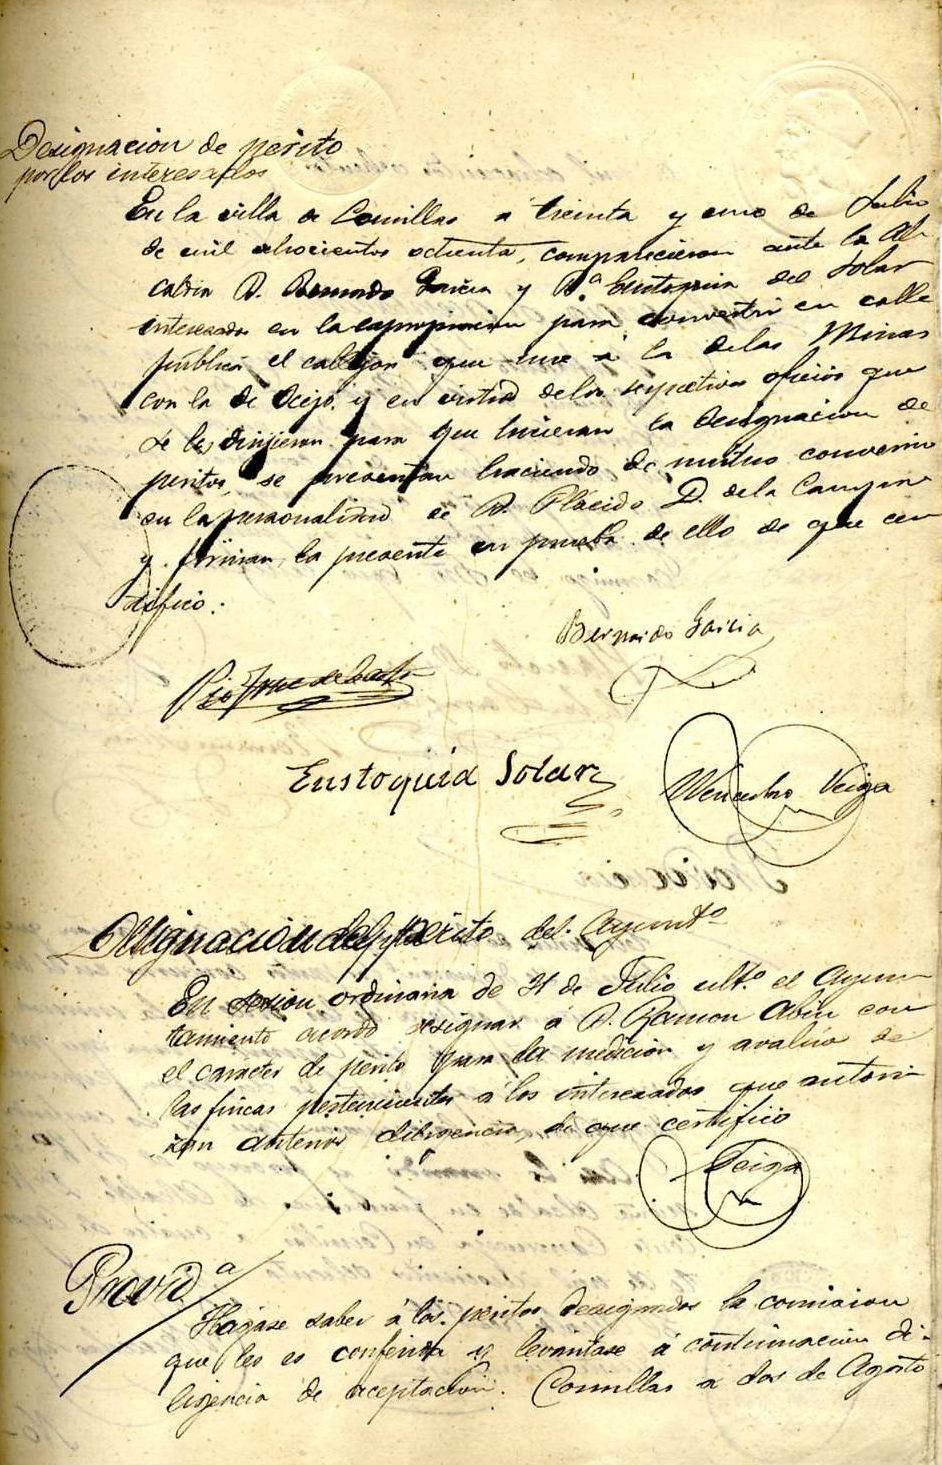 Designacion de perito
por los interesados
En la villa de Comillas a treinta y uno de Julio
de mil ochocientos ochenta, comparecieron ante la Al-
caldia D. Bernardo Garcia y D.ª Eustoquia del Solar
interesados en la expropiacion para convertir en calle
publica el callejon que une á la de las Minas
con la de Viejo, y en virtud de los respectivos oficios que
se les dirijieron para que hicieran la designacion de
peritos, se presentan haciendo de mutuo convenio
en la personalidad de D. Plácido D. de la Campa
y firman la presente en prueba de ello de que cer
tifico:
Bernardo Garcia
Eustoquia Solar
Wenceslao Veiga
Designacion del perito del Ayuntº
En sesion ordinaria de 31 de Julio ultº el Ayun-
tamiento acordó designar a D. Ramon Abin con
el caracter de perito para la medicion y avalúo de
las fincas pertenecientes a los interesados que autori-
zan anterior diligencia, de que certifico
Veiga
Providª
Hágase saber á los peritos designados la comision
que les es conferida y levántase á continuacion di-
ligencia de aceptacion. Comillas a dos de Agosto